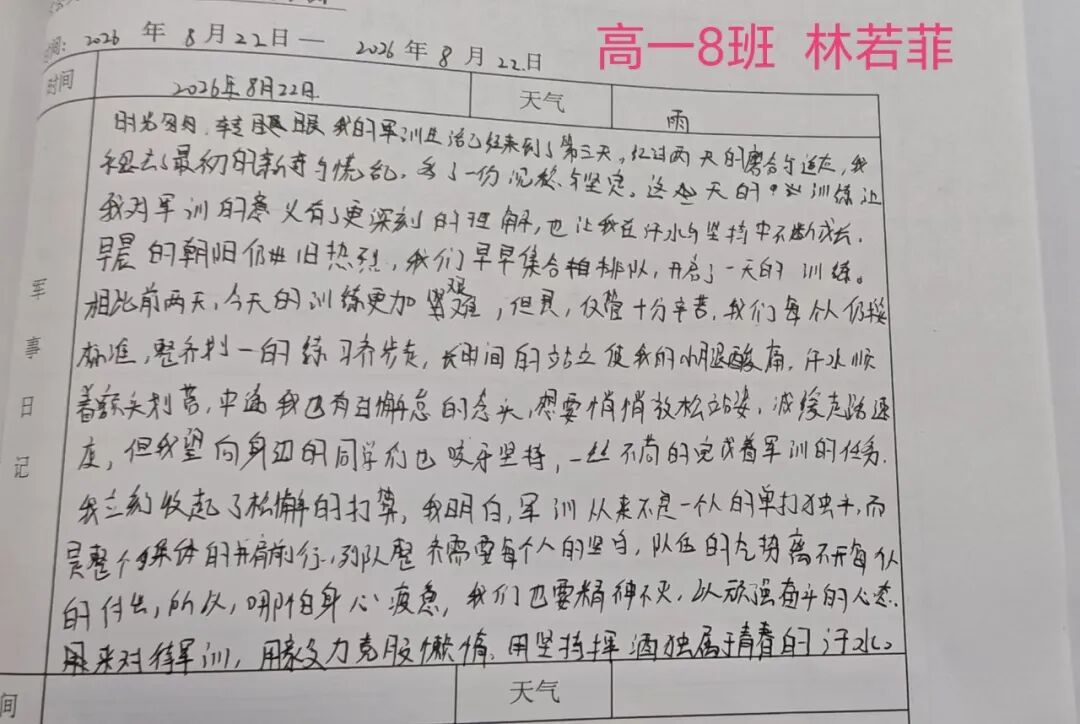 时间: 2026 年 8 月 22 日 — 2026 年 8 月 22 日
高一8班 林若菲
时间 2026年8月22日 天气 雨
军事日记
时光匆匆, 我的军训生活已经来到了第三天, 经过两天的磨合与适应, 我
褪去了最初的新奇与慌乱, 多了一份沉稳与坚定。这 天的 训练让
我对军训的意义有了更深刻的理解, 也让我在汗水与坚持中不断成长.
早晨的朝阳仍 旧热烈, 我们早早集合 排队, 开启了一天的训练。
相比前两天, 今天的训练更加 艰难, 但是, 仅管十分辛苦, 我们每个人仍按
标准, 整齐划一的练习齐步走, 长时间的站立使我的小腿酸痛, 汗水顺
着额头 , 中途我也有过懈怠的念头, 想要悄悄放松站姿, 减缓走路速
度, 但我望向身边的同学们也咬牙坚持, 一丝不苟的完成着军训的任务.
我立刻收起了松懈的打算, 我明白, 军训从来不是一个人的单打独斗, 而
是整个集体的并肩前行, 列队整齐需要每个人的 , 队伍的气势离不开每个人
的付出, 所以, 哪怕身心疲惫, 我们也要精神不灭, 以顽强奋斗的心态
来对待军训, 用毅力克服懒惰, 用坚持挥洒独属于青春的汗水。
间 天气